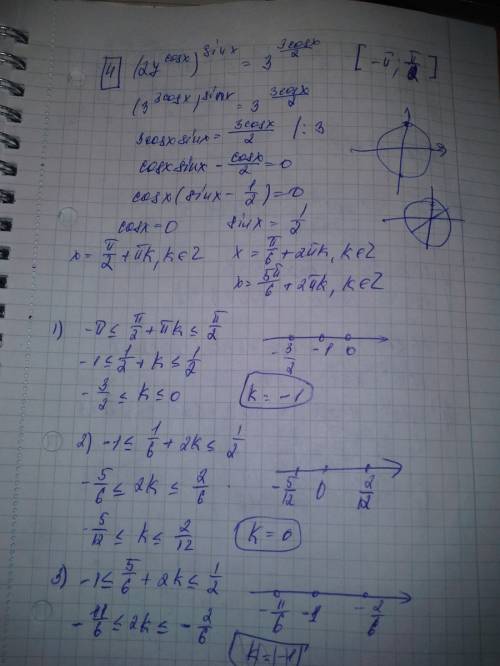 4 (27^cosx)^sinx = 3^(3cosx/2) [-π; π/2]
(3^3cosx)^sinx = 3^(3cosx/2)
3cosxsinx = 3cosx/2 /:3
cosxsinx - cosx/2 = 0
cosx(sinx - 1/2) = 0
cosx = 0 sinx = 1/2
x = π/2 + πk, k∈Z x = π/6 + 2πk, k∈Z
x = 5π/6 + 2πk, k∈Z
1) -π ≤ π/2 + πk ≤ π/2
-1 ≤ 1/2 + k ≤ 1/2 -3/2 -1 0
-3/2 ≤ k ≤ 0 k = -1
2) -1 ≤ 1/6 + 2k ≤ 1/2
-5/6 ≤ 2k ≤ 2/6 -5/12 0 2/12
-5/12 ≤ k ≤ 2/12 k = 0
3) -1 ≤ 5/6 + 2k ≤ 1/2
-11/6 ≤ 2k ≤ -2/6 -11/6 -1 -2/6
k = -1